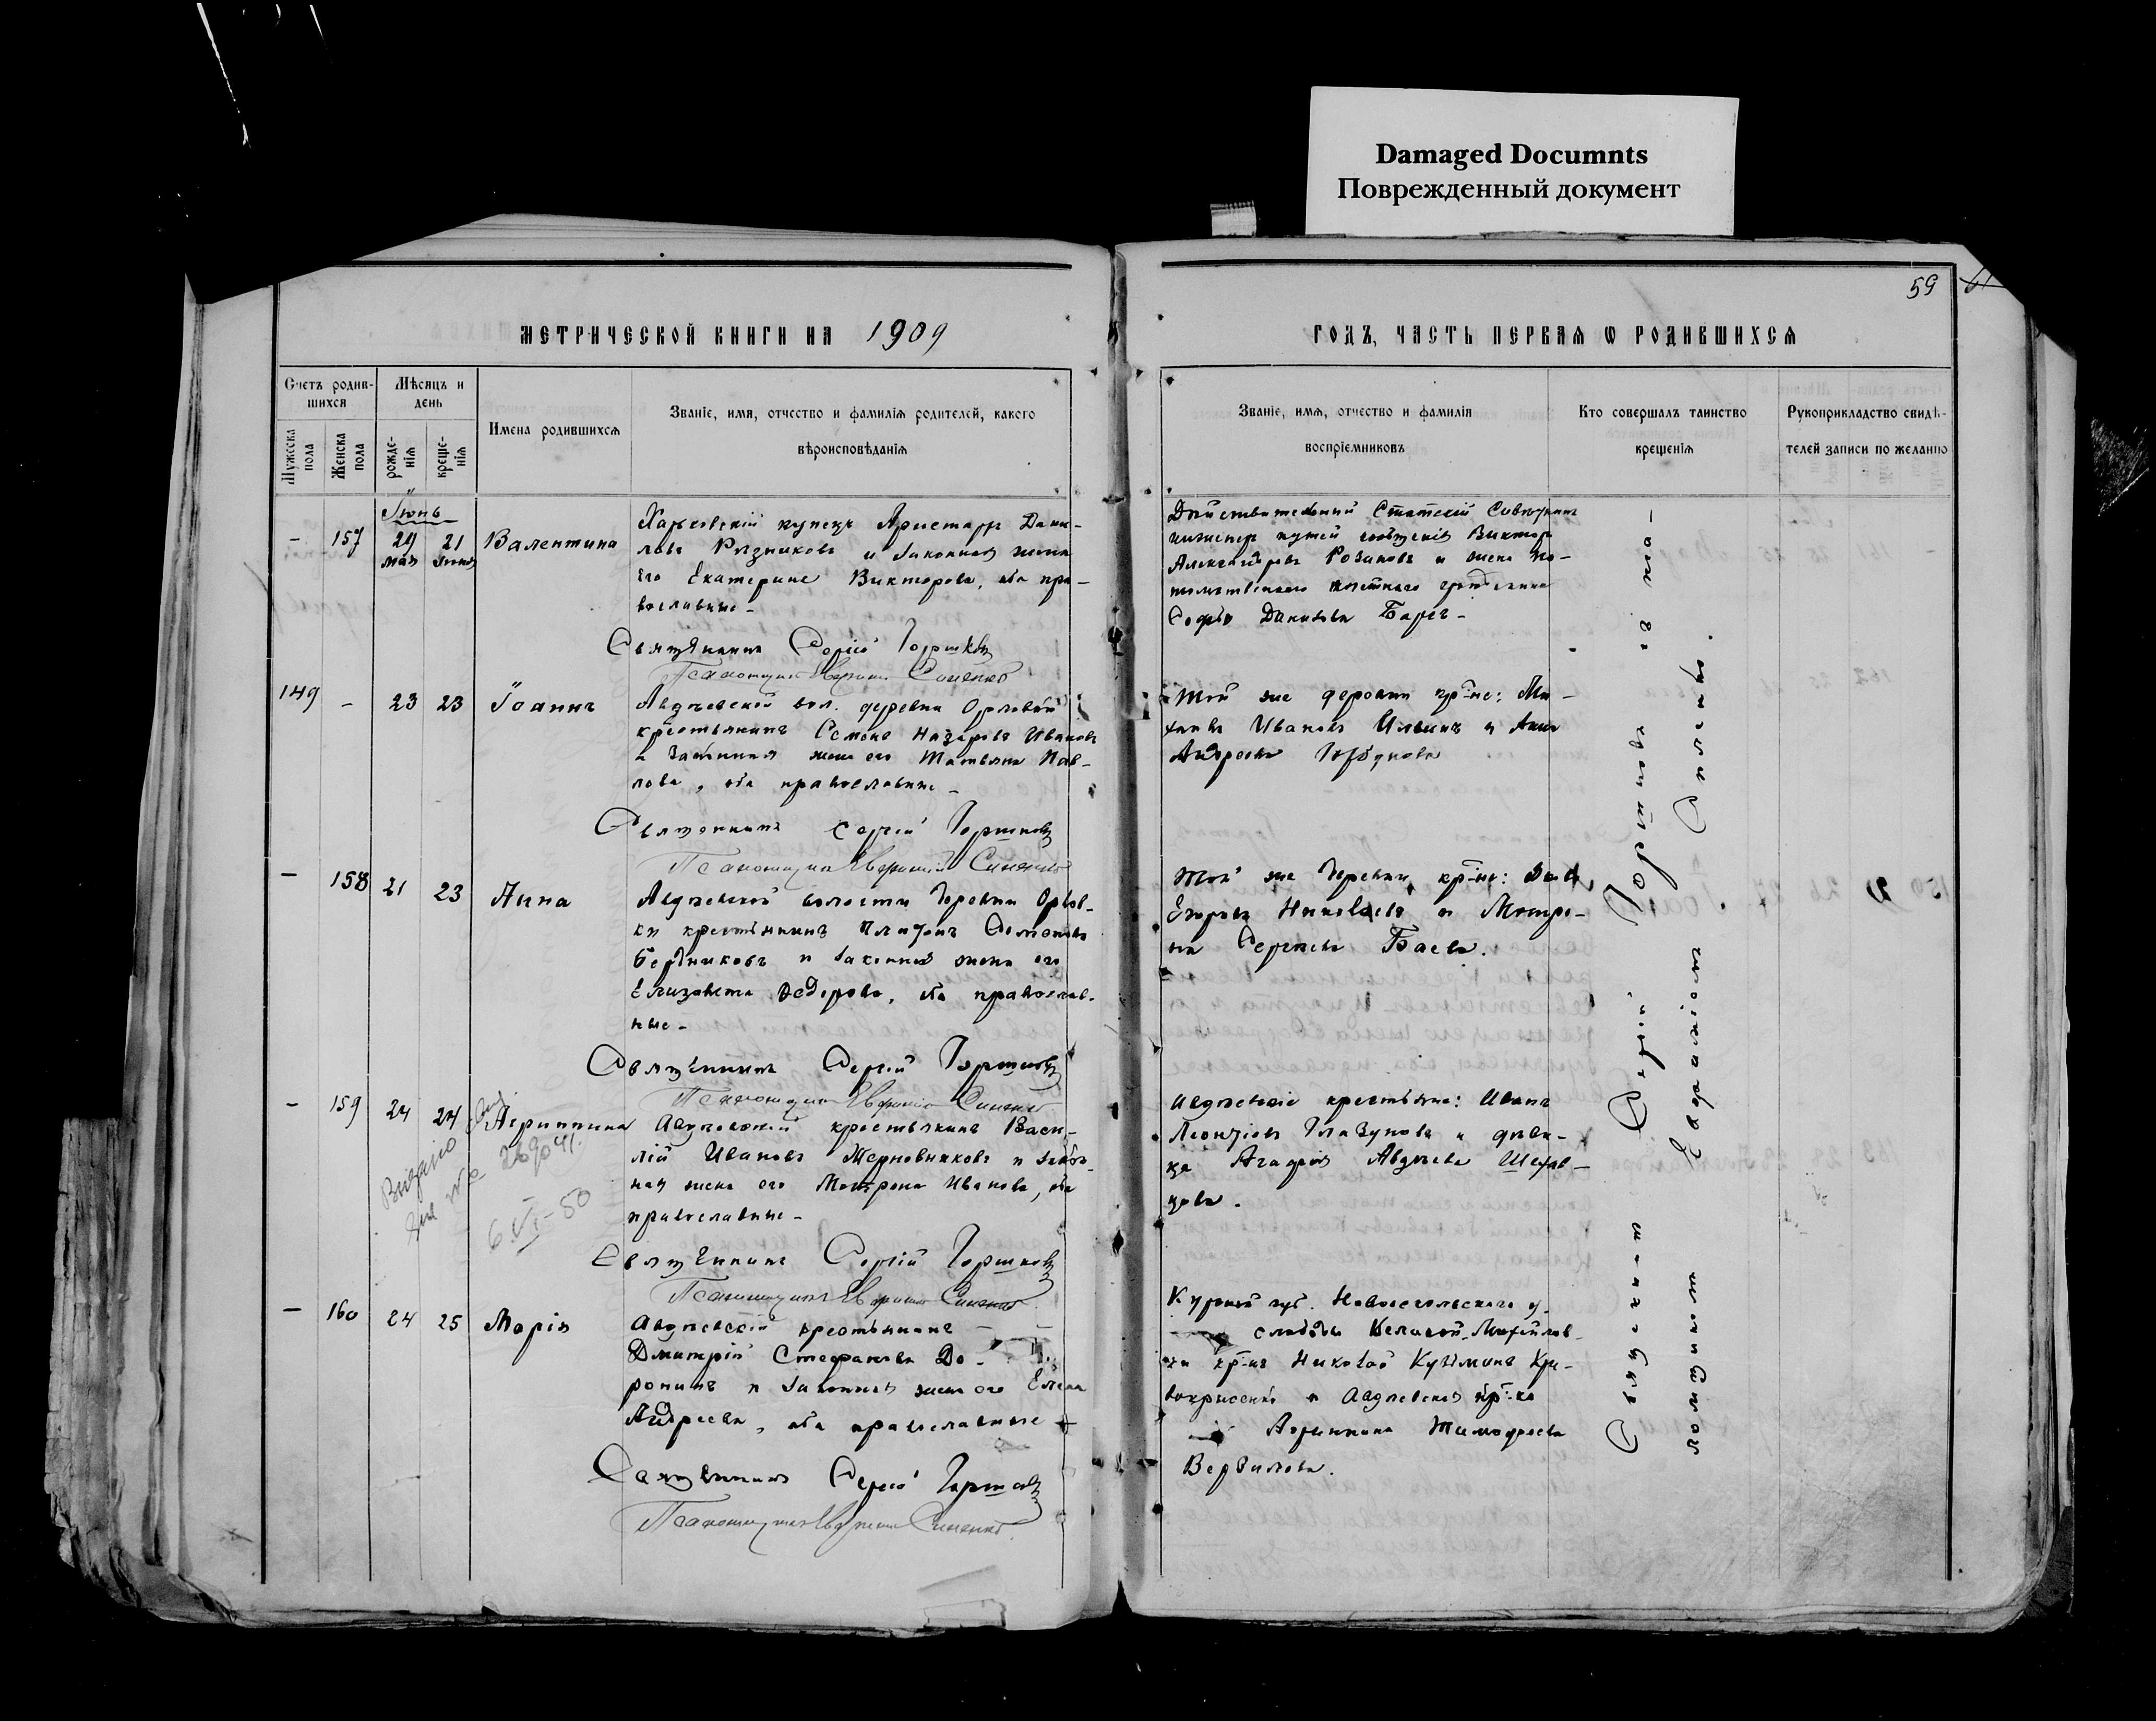 Damaged Documnts
Поврежденный документ
59
МЕТРИЧЕСКОЙ КНИГИ НА 1909
ГОДЪ, ЧАСТЬ ПЕРВАЯ Ѡ РОДИВШИХСЯ
Счетъ родив-
шихся
Мѣсяцъ и
день
Имена родившихся
Званіе, имя, отчество и фамилія родителей, какого
вѣроисповѣданія
Мужеска
пола
Женска
пола
рожде-
нія
креще-
нія
Званіе, имя, отчество и фамилія
воспріемниковъ
Кто совершалъ таинство
крещенія
Рукоприкладство свидѣ-
телей записи по желанію
Іюнь
- 157 29 21 Валентина
мая Іюня
Харьковскій купецъ Аристархъ Дани-
ловъ Рѣзниковъ и законная жена
его Екатерина Викторова, оба пра-
вославные -
Священникъ Сергій Горшковъ
Псаломщикъ Евфимій Синенко
Дѣйствительный Статскій Совѣтникъ
инженер путей сообщенія Викторъ
Александровъ Розановъ и жена по-
томственнаго почетнаго гражданина
Софья Данилова
149 - 23 23 Іоаннъ
Авдѣевской вол. деревни Орловки
крестьянинъ Семенъ Назаровъ Ивановъ
и законная жена его Татьяна Пав-
лова, оба православные -
Священникъ Сергій Горшковъ
Псаломщикъ Евфимій Синенко
Той же деревни кр-не: Ми-
Ивановъ Ильинъ и Анна
Андреева
- 158 21 23 Анна
Авдѣевской волости деревни Орлов-
ки крестьянинъ Платонъ Семеновъ
Бердниковъ и законная жена его
Елизавета Ѳедорова, оба православ-
ные -
Священникъ Сергій Горшковъ
Псаломщикъ Евфимій Синенко
Той же деревни кр-не:
Егоровъ Николаевъ и Матро-
на Сергѣева Баева.
- 159 24 24 Агриппина
Авдѣевскій крестьянинъ Васи-
лій Ивановъ Жерновниковъ и закон-
ная жена его Матрона Иванова, оба
православные -
6.VI-50
Священникъ Сергій Горшковъ
Псаломщикъ Евфимій Синенко
Авдѣевскіе крестьяне: Иванъ
Леонтіевъ Глазуновъ и дѣви-
ца Агафія Авдѣева Шехов-
цова.
- 160 24 25 Марія
Авдѣевскій крестьянинъ
Дмитрій Стефановъ До-
ронинъ и законная жена его Елена
Андреева, оба православные
Священникъ Сергій Горшковъ
Псаломщикъ Евфимій Синенко
Курской губ. Новооскольскаго у.
слободы Великой-Михайлов-
ки кр-нъ Николай Кузьминъ Кри-
и Авдѣевская кр-ка
Агриппина Тимофеева
Священникъ Сергій Горшковъ съ пса-
ломщикомъ Евфиміемъ Синенко.